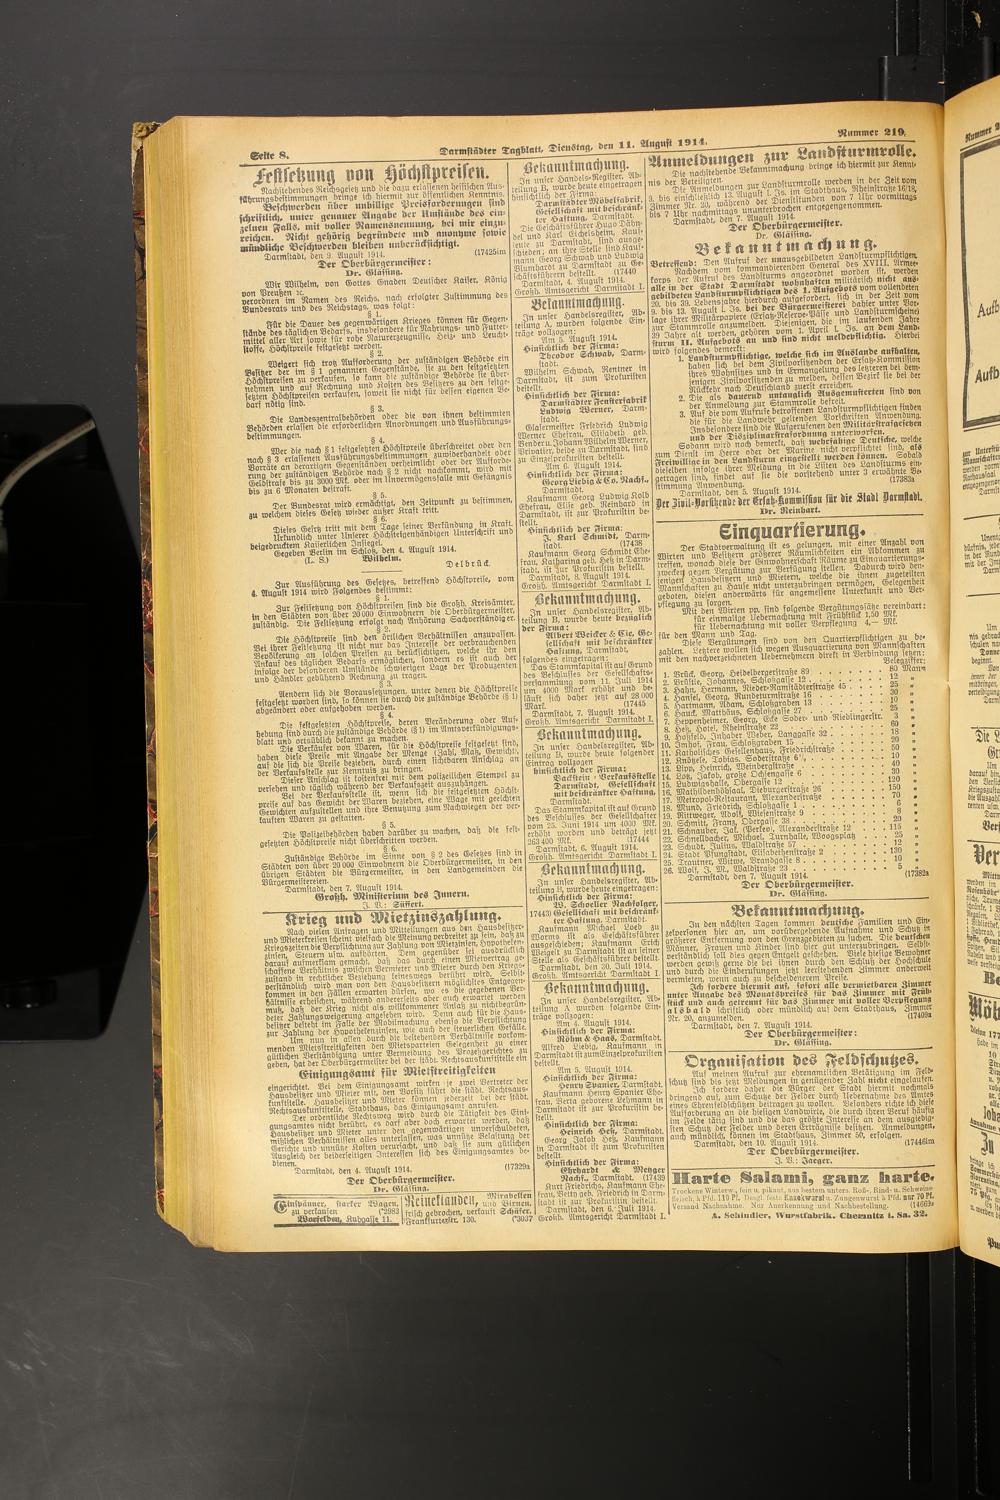 Seite 8.
Darmstädter Tagblatt, Dienstag, den 11. August 1914.
Nummer 219.
Festsetzung von Höchstpreisen.
Nachstehendes Reichsgesetz und die dazu erlassenen hessischen Aus-
führungsbestimmungen bringe ich hiermit zur öffentlichen Kenntnis.
Beschwerden über unbillige Preisforderungen sind
schriftlich, unter genauer Angabe der Umstände des ein-
zelnen Falls, mit voller Namensnennung, bei wir einzu-
reichen. Nicht gehörig begründete und anonyme sowie
mündliche Beschwerden bleiben unberücksichtigt.
Darmstadt, den 9. August 1914. (17425im
Der Oberbürgermeister:
Dr. Glässing.
Wir Wilhelm, von Gottes Gnaden Deutscher Kaiser, König
von Preußen ꝛc.
verordnen im Namen des Reichs, nach erfolgter Zustimmung des
Bundesrats und des Reichstags, was folgt:
§ 1.
Für die Dauer des gegenwärtigen Krieges können für Gegen-
stände des täglichen Bedarfs, insbesondere für Nahrungs- und Futter-
mittel aller Art sowie für rohe Naturerzeugnisse, Heiz- und Leucht-
stoffe, Höchstpreise festgesetzt werden.
§ 2.
Weigert sich trotz Aufforderung der zuständigen Behörde ein
Besitzer der im § 1 genannten Gegenstände, sie zu den festgesetzten
Höchstpreisen zu verkaufen, so kann die zuständige Behörde sie über-
nehmen und auf Rechnung und Kosten des Besitzers zu den festge-
setzten Höchstpreisen verkaufen, soweit sie nicht für dessen eigenen Be-
darf nötig sind.
§ 3.
Die Landeszentralbehörden oder die von ihnen bestimmten
Behörden erlassen die erforderlichen Anordnungen und Ausführungs-
bestimmungen.
§ 4.
Wer die nach § 1 festgesetzten Höchstpreise überschreitet oder den
nach § 3 erlassenen Ausführungsbestimmungen zuwiderhandelt oder
Vorräte an derartigen Gegenständen verheimlicht oder der Aufforde-
rung der zuständigen Behörde nach § 2 nicht nachkommt, wird mit
Geldstrafe bis zu 3000 Mk. oder im Unvermögensfalle mit Gefängnis
bis zu 6 Monaten bestraft.
§ 5.
Der Bundesrat wird ermächtigt, den Zeitpunkt zu bestimmen,
zu welchem dieses Gesetz wieder außer Kraft tritt.
§ 6.
Dieses Gesetz tritt mit dem Tage seiner Verkündung in Kraft.
Urkundlich unter Unserer Höchsteigenhändigen Unterschrift und
beigedrucktem Kaiserlichen Insiegel.
Gegeben Berlin im Schloß, den 4. August 1914.
(L. S.) Wilhelm.
Delbrück.
Zur Ausführung des Gesetzes, betreffend Höchstpreise, vom
4. August 1914 wird Folgendes bestimmt:
§ 1.
Zur Festsetzung von Höchstpreisen sind die Großh. Kreisämter,
in den Städten von über 20000 Einwohnern die Oberbürgermeister,
zuständig. Die Festsetzung erfolgt nach Anhörung Sachverständiger.
§ 2.
Die Höchstpreise sind den örtlichen Verhältnissen anzupassen.
Bei ihrer Festsetzung ist nicht nur das Interesse der verbrauchenden
Bevölkerung an solchen Preisen zu berücksichtigen, welche ihr den
Ankauf des täglichen Bedarfs ermöglichen, sondern es ist auch der
infolge der besonderen Umstände schwierigen Lage der Produzenten
und Händler gebührend Rechnung zu tragen.
§ 3.
Aendern sich die Voraussetzungen, unter denen die Höchstpreise
festgesetzt worden sind, so können sie durch die zuständige Behörde (§ 1)
abgeändert oder aufgehoben werden.
§ 4.
Die festgesetzten Höchstpreise, deren Veränderung oder Auf-
hebung sind durch die zuständige Behörde (§ 1) im Amtsverkündigungs-
blatt und ortsüblich bekannt zu machen.
Die Verkäufer von Waren, für die Höchstpreise festgesetzt sind,
haben diese Preise mit Angabe der Menge (Zahl, Maß, Gewicht),
auf die sich die Preise beziehen, durch einen sichtbaren Anschlag an
der Verkaufsstelle zur Kenntnis zu bringen.
Dieser Anschlag ist kostenfrei mit dem polizeilichen Stempel zu
versehen und täglich während der Verkaufszeit auszuhängen.
Bei der Verkaufsstelle ist, wenn sich die festgesetzten Höchst-
preise auf das Gewicht der Waren beziehen, eine Wage mit geeichten
Gewichten aufzustellen und ihre Benutzung zum Nachwiegen der ver-
kauften Waren zu gestatten.
§ 5.
Die Polizeibehörden haben darüber zu wachen, daß die fest-
gesetzten Höchstpreise nicht überschritten werden.
§ 6.
Zuständige Behörde im Sinne von § 2 des Gesetzes sind in
Städten von über 20000 Einwohnern die Oberbürgermeister, in den
übrigen Städten die Bürgermeister, in den Landgemeinden die
Bürgermeistereien.
Darmstadt, den 7. August 1914.
Großh. Ministerium des Innern.
J. V.: Süffert.
Krieg und Mietzinszahlung.
Nach vielen Anfragen und Mitteilungen aus den Hausbesitzer-
und Mieterkreisen scheint vielfach die Meinung verbreitet zu sein, daß zu
Kriegszeiten die Verpflichtung zur Zahlung von Mietzinsen, Hypotheken-
zinsen, Steuern usw. aufhörten. Dem gegenüber sei ausdrücklich
darauf aufmerksam gemacht, daß das durch einen Mietvertrag ge-
schaffene Verhältnis zwischen Vermieter und Mieter durch den Kriegs-
zustand in rechtlicher Beziehung keineswegs berührt wird. Selbst-
verständlich wird man von den Hausbesitzern möglichstes Entgegen-
kommen in den Fällen erwarten dürfen, wo es die gegebenen Ver-
hältnisse erheischen, während andererseits aber auch erwartet werden
muß, daß der Krieg nicht als willkommener Anlaß zu nichtbegrün-
deter Zahlungsweigerung angesehen wird. Denn auch für die Haus-
besitzer besteht im Falle der Mobilmachung ebenso die Verpflichtung
zur Zahlung der Hypothekzinsen, wie auch der steuerlichen Gefälle.
Um nun in allen durch die bestehenden Verhältnisse vorkom-
menden Mietstreitigkeiten den Mietsparteien Gelegenheit zu einer
gütlichen Verständigung unter Vermeidung des Prozeßgerichtes zu
geben, hat der Oberbürgermeister bei der städt. Rechtsauskunftstelle ein
Einigungsamt für Mietstreitigkeiten
eingerichtet. Bei dem Einigungsamt wirken je zwei Vertreter der
Hausbesitzer und Mieter mit, den Vorsitz führt die städt. Rechtsaus-
kunftstelle. Hausbesitzer und Mieter können jederzeit bei der städt.
Rechtsauskunftstelle, Stadthaus, das Einigungsamt anrufen.
Der ordentliche Rechtsweg wird durch die Tätigkeit des Eini-
gungsamtes nicht berührt, es darf aber doch erwartet werden, daß
Hausbesitzer und Mieter unter den gegenwärtigen unverschuldeten,
mißlichen Verhältnissen alles unterlassen, was unnütze Belastung der
Gerichte und unnütze Kosten verursacht, und daß sie zum gütlichen
Ausgleich der beiderseitigen Interessen sich des Einigungsamtes be-
dienen.
Darmstadt, den 4. August 1914. (17329a
Der Oberbürgermeister.
Dr. Glässing.
Einspänner, starker Wagen,
zu verkaufen (*2983
Worfelden, Kuhgasse 11.
Reineklauden, Mirabellen
und Birnen,
frisch gebrochen, verkauft Schäfer,
Frankfurterstr. 130. (*3037
Bekanntmachung.
In unser Handels-Register, Ab-
teilung B, wurde heute eingetragen
hinsichtlich der Firma:
Darmstädter Möbelfabrik,
Gesellschaft mit beschränk-
ter Haftung, Darmstadt.
Die Geschäftsführer Hugo Dähn-
del und Karl Eichelsheim, Kauf-
leute zu Darmstadt, sind ausge-
schieden; an ihre Stelle sind Kauf-
mann Georg Schwab und Ludwig
Blumhardt zu Darmstadt zu Ge-
schäftsführern bestellt. (17440
Darmstadt, 4. August 1914.
Großh. Amtsgericht Darmstadt I.
Bekanntmachung.
In unser Handelsregister, Ab-
teilung A, wurden folgende Ein-
träge vollzogen:
Am 5. August 1914.
Hinsichtlich der Firma:
Theodor Schwab, Darm-
stadt.
Wilhelm Schwab, Rentner in
Darmstadt, ist zum Prokuristen
bestellt.
Hinsichtlich der Firma:
Darmstädter Fensterfabrik
Ludwig Werner, Darm-
stadt.
Glasermeister Friedrich Ludwig
Werner Ehefrau, Elisabeth geb.
Bender u. Johann Wilhelm Werner,
Privatier, beide zu Darmstadt, sind
zu Einzelprokuristen bestellt.
Am 6. August 1914.
Hinsichtlich der Firma:
Georg Liebig & Co. Nachf.,
Darmstadt.
Kaufmann Georg Ludwig Kolb
Ehefrau, Elise geb. Reinhard in
Darmstadt, ist zur Prokuristin be-
stellt.
Hinsichtlich der Firma:
J. Karl Schmidt, Darm-
stadt. (17438
Kaufmann Georg Schmidt Ehe-
frau, Katharina geb. Heß in Darm-
stadt, ist zur Prokuristin bestellt.
Darmstadt, 8. August 1914.
Großh. Amtsgericht Darmstadt I.
Bekanntmachung.
In unser Handelsregister, Ab-
teilung B, wurde heute bezüglich
der Firma:
Albert Weicker & Cie, Ge-
sellschaft mit beschränkter
Haftung, Darmstadt,
folgendes eingetragen:
Das Stammkapital ist auf Grund
des Beschlusses der Gesellschafts-
versammlung vom 11. Juli 1914
um 4000 Mark erhöht und be-
läuft sich daher jetzt auf 28 000
Mark. (17445
Darmstadt, 7. August 1914.
Großh. Amtsgericht Darmstadt I.
Bekanntmachung.
In unser Handelsregister, Ab-
teilung B, wurde heute folgender
Eintrag vollzogen
hinsichtlich der Firma:
Backstein-Verkaufsstelle
Darmstadt, Gesellschaft
mit beschränkter Haftung,
Darmstadt.
Das Stammkapital ist auf Grund
des Beschlusses der Gesellschafter
vom 25. Juni 1914 um 4000 Mk.
erhöht worden und beträgt jetzt
263 400 Mk. 17444
Darmstadt, 6. August 1914.
Großh. Amtsgericht Darmstadt I.
Bekanntmachung.
In unser Handelsregister, Ab-
teilung B, wurde heute eingetragen:
Hinsichtlich der Firma:
W. Schoeller Nachfolger,
17443) Gesellschaft mit beschränk-
ter Haftung, Darmstadt.
Kaufmann Michael Loeb zu
Worms ist als Geschäftsführer
ausgeschieden; Kaufmann Erich
Weigelt zu Darmstadt ist an seiner
Stelle als Geschäftsführer bestellt.
Darmstadt, den 30. Juli 1914.
Großh. Amtsgericht Darmstadt I.
Bekanntmachung.
In unser Handelsregister, Ab-
teilung A, wurden folgende Ein-
tragungen vollzogen:
Am 4. August 1914.
Hinsichtlich der Firma:
Röhm & Haas, Darmstadt.
Alfred Liebig, Kaufmann in
Darmstadt ist zum Einzelprokuristen
bestellt.
Am 5. August 1914.
Hinsichtlich der Firma:
Henry Spanier, Darmstadt.
Kaufmann Henry Spanier Ehe-
frau, Berta geborene Lehmann in
Darmstadt ist zur Prokuristin be-
stellt.
Hinsichtlich der Firma:
Heinrich Heß, Darmstadt.
Georg Jakob Heß, Kaufmann
in Darmstadt, ist zum Prokuristen
bestellt.
Hinsichtlich der Firma:
Ehrhardt & Metzger
Nachf., Darmstadt. (17439
Kurt Friedrichs, Kaufmann Ehe-
frau, Betty geb. Friedrich in Darm-
stadt ist zur Prokuristin bestellt.
Darmstadt, den 6. Juli 1914.
Großh. Amtsgericht Darmstadt I.
Anmeldungen zur Landsturmrolle.
Die nachstehende Bekanntmachung bringe ich hiermit zur Kennt-
nis der Beteiligten.
Die Anmeldungen zur Landsturmrolle werden in der Zeit vom
9. bis einschließlich 13. August l. Js. im Stadthaus, Rheinstraße 16/18,
Zimmer Nr. 20, während der Dienststunden von 7 Uhr vormittags
bis 7 Uhr nachmittags ununterbrochen entgegengenommen.
Darmstadt, den 7. August 1914.
Der Oberbürgermeister.
Dr. Glässing.
Bekanntmachung.
Betreffend: Den Aufruf der unausgebildeten Landsturmpflichtigen.
Nachdem vom kommandierenden General des XVIII. Armee-
korps der Aufruf des Landsturms angeordnet worden ist, werden
alle in der Stadt Darmstadt wohnhaften militärisch nicht aus-
gebildeten Landsturmpflichtigen des 1. Aufgebots vom vollendeten
20. bis 39. Lebensjahre hierdurch aufgefordert, sich in der Zeit vom
9. bis 13. August l. Js. bei der Bürgermeisterei dahier unter Vor-
lage ihrer Militärpapiere (Ersatz-Reserve-Pässe und Landsturmscheine)
zur Stammrolle anzumelden. Diejenigen, die im laufenden Jahre
39 Jahre alt werden, gehören vom 1. April l. Js. an dem Land-
sturm II. Aufgebots an und sind nicht meldepflichtig. Hierbei
wird folgendes bemerkt:
1. Landsturmpflichtige, welche sich im Auslande aufhalten,
haben sich bei dem Zivilvorsitzenden der Ersatz-Kommission
ihres Wohnsitzes und in Ermangelung des letzteren bei dem-
jenigen Zivilvorsitzenden zu melden, dessen Bezirk sie bei der
Rückkehr nach Deutschland zuerst erreichen.
2. Die als dauernd untauglich Ausgemusterten sind von
der Anmeldung zur Stammrolle befreit.
3. Auf die vom Aufrufe betroffenen Landsturmpflichtigen finden
die für die Landwehr geltenden Vorschriften Anwendung.
Insbesondere sind die Aufgerufenen den Militärstrafgesetzen
und der Disziplinarstrafordnung unterworfen.
Sodann wird noch bemerkt, daß wehrfähige Deutsche, welche
zum Dienst im Heere oder der Marine nicht verpflichtet sind, als
Freiwillige in den Landsturm eingestellt werden können. Sobald
dieselben infolge ihrer Meldung in die Listen des Landsturms ein-
getragen sind, findet auf sie die vorstehend unter 3 erwähnte Be-
stimmung Anwendung. (17383a
Darmstadt, den 5. August 1914.
Der Zivil-Vorsitzende der Ersatz-Kommission für die Stadt Darmstadt.
Dr. Reinhart.
Einquartierung.
Der Stadtverwaltung ist es gelungen, mit einer Anzahl von
Wirten und Besitzern größerer Räumlichkeiten ein Abkommen zu
treffen, wonach diese der Einwohnerschaft Räume zu Einquartierungs-
zwecken gegen Vergütung zur Verfügung stellen. Dadurch wird den-
jenigen Hausbesitzern und Mietern, welche die ihnen zugeteilten
Mannschaften zu Hause nicht unterzubringen vermögen, Gelegenheit
geboten, diesen anderwärts für angemessene Unterkunft und Ver-
pflegung zu sorgen.
Mit den Wirten pp. sind folgende Vergütungssätze vereinbart:
für einmalige Uebernachtung mit Frühstück 1,50 Mk.
für Uebernachtung mit voller Verpflegung 4,— Mk.
für den Mann und Tag.
Diese Vergütungen sind von den Quartierpflichtigen zu be-
zahlen. Letztere wollen sich wegen Ausquartierung von Mannschaften
mit den nachverzeichneten Uebernehmern direkt in Verbindung setzen:
Belegziffer:
1. Brück, Georg, Heidelbergerstraße 89 . . . 80 Mann
2. Brüstle, Johannes, Schloßgasse 12 . . . 12 „
3. Hahn, Hermann, Nieder-Ramstädterstraße 45 . . . 25 „
4. Hansel, Georg, Rundeturmstraße 16 . . . 30 „
5. Hartmann, Adam, Schloßgraben 13 . . . 10 „
6. Hauck, Matthäus, Schloßgasse 27 . . . 25 „
7. Heppenheimer, Georg, Ecke Soder- und Riedlingerstr. 3 „
8. Heß, Hotel, Rheinstraße 22 . . . 60 „
9. Hoßfeld, Inhaber Weber, Langgasse 32 . . . 18 „
10. Imhof, Frau, Schloßgraben 15 . . . 20 „
11. Katholisches Gesellenhaus, Friedrichstraße . . . 50 „
12. Knötzele, Tobias, Soderstraße 6½ . . . 10 „
13. Lipp, Heinrich, Weinbergstraße . . . 40 „
14. Lotz, Jakob, große Ochsengasse 6 . . . 30 „
15. Ludwigshalle, Obergasse . . . 120 „
16. Mathildenhöhsaal, Dieburgerstraße 26 . . . 150 „
17. Metropol-Restaurant, Alexanderstraße . . . 70 „
18. Mund, Friedrich, Schloßgasse 1 . . . 6 „
19. Rittweger, Adolf, Wiesenstraße 9 . . . 8 „
20. Schmitt, Franz, Obergasse 38 . . . 20 „
21. Schnauber, Jak. (Perkeo), Alexanderstraße 12 . . . 115 „
22. Schnellbacher, Michael, Turnhalle, Woogsplatz . . . 25 „
23. Schubt, Julius, Waldstraße 57 . . . 12 „
24. Stadt Pfungstadt, Elisabethenstraße 2 . . . 130 „
25. Trautner, Witwe, Brandgasse 8 . . . 10 „
26. Wolf, J. M., Waldstraße 23 . . . 5 „
Darmstadt, den 7. August 1914. (17382a
Der Oberbürgermeister.
Dr. Glässing.
Bekanntmachung.
In den nächsten Tagen kommen deutsche Familien und Ein-
zelpersonen hier an, um vorübergehende Aufnahme und Schutz in
größerer Entfernung von den Grenzgebieten zu suchen. Die deutschen
Männer, Frauen und Kinder sind hier gut unterzubringen. Selbst-
verständlich soll dies gegen Entgelt geschehen. Viele hiesige Bewohner
werden gewiß gerne die bei ihnen durch den Schluß der Hochschule
und durch die Einberufungen jetzt leerstehenden Zimmer anderweit
vermieten, wenn auch zu bescheidenerem Preise.
Ich fordere hiermit auf, sofort alle vermietbaren Zimmer
unter Angabe des Monatspreises für das Zimmer mit Früh-
stück und auch getrennt für das Zimmer mit voller Verpflegung
alsbald schriftlich oder mündlich auf das Stadthaus, Zimmer
Nr. 20, anzumelden. (17409a
Darmstadt, den 7. August 1914.
Der Oberbürgermeister:
Dr. Glässing.
Organisation des Feldschutzes.
Auf meinen Aufruf zur ehrenamtlichen Betätigung im Feld-
schutz sind bis jetzt Meldungen in genügender Zahl nicht eingelaufen.
Ich fordere daher die Bürger der Stadt hiermit nochmals
dringend auf, zum Schutze der Felder durch Uebernahme des Amtes
eines Ehrenfeldschützen beitragen zu wollen. Besonders richte ich diese
Aufforderung an die hiesigen Landwirte, die durch ihren Beruf häufig
im Felde tätig sind und die das größte Interesse an dem ausgiebig-
sten Schutz der Felder und deren Erträgnisse besitzen. Anmeldungen,
auch mündlich, können im Stadthaus, Zimmer 50, erfolgen.
Darmstadt, den 10. August 1914. (17446im
Der Oberbürgermeister.
J. V.: Jaeger.
Harte Salami, ganz harte.
Trockene Winterw., fein u. pikant, aus bestem unters. Roß-, Rind- u. Schweine-
fleisch, à Pfd. 110 Pf. Desgl. feste Knackwurst u. Zungenwurst à Pfd. nur 70 Pf.
Versand Nachnahme. Nur Anerkennung und Nachbestellung. (14669a
A. Schindler, Wurstfabrik, Chemnitz i. Sa. 32.